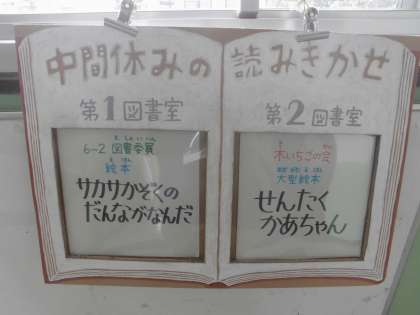 中間休みの 読みきかせ
第1図書室
6-2 図書委員
絵本
サカサかぞくの
だんながなんだ
第2図書室
木いちごの会
大型絵本
せんたく
かあちゃん